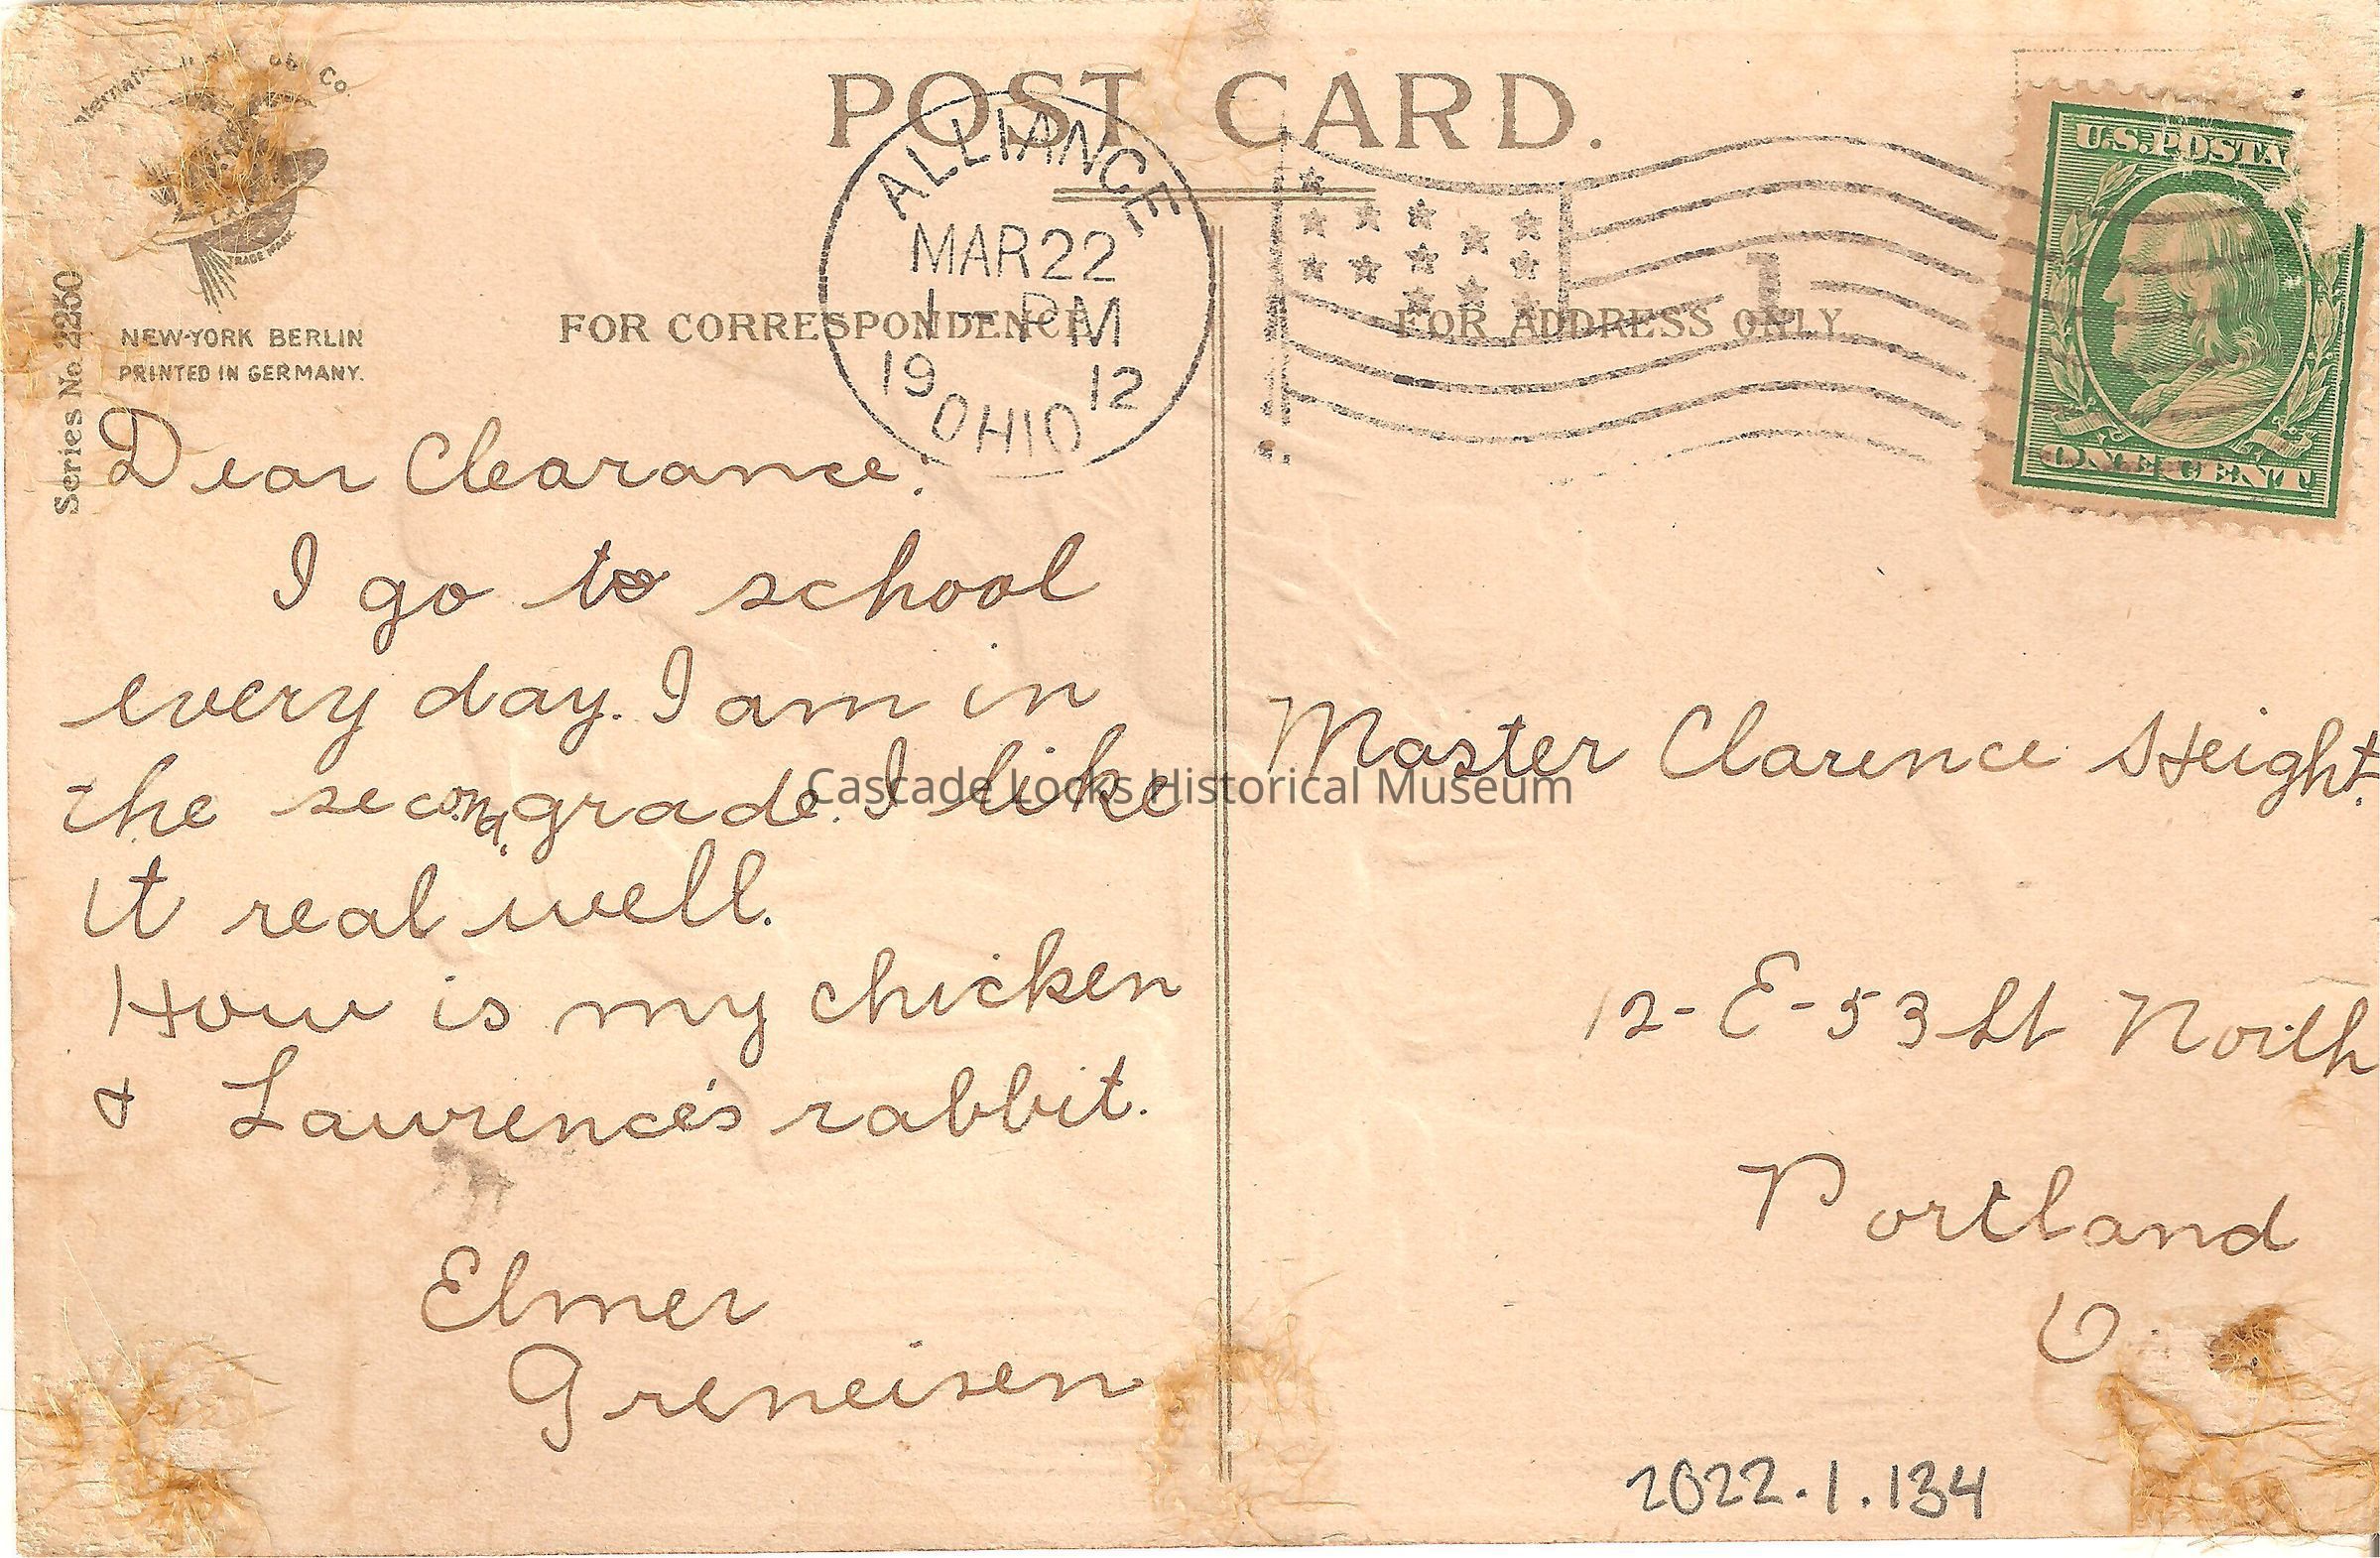 POST CARD.
Co.
TRADE MARK
NEW-YORK BERLIN
PRINTED IN GERMANY.
Series No. 2250
FOR CORRESPONDENCE
FOR ADDRESS ONLY
ALLIANCE
MAR 22
1 - PM
19 12
OHIO
1
U.S. POSTA
ONE CENT
Dear Clearance:
I go to school
every day. I am in
the second grade. I like
it real well.
How is my chicken
& Lawrence's rabbit.
Elmer
Greneisen
Master Clarence Height.
12-E-53 St North
Portland
O
Cascade Locks Historical Museum
2022.1.134